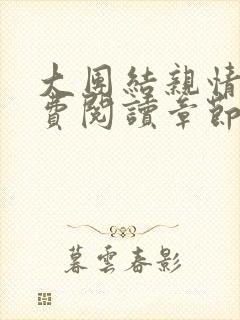 大團結親情
費閱讀章節
暮雲春影